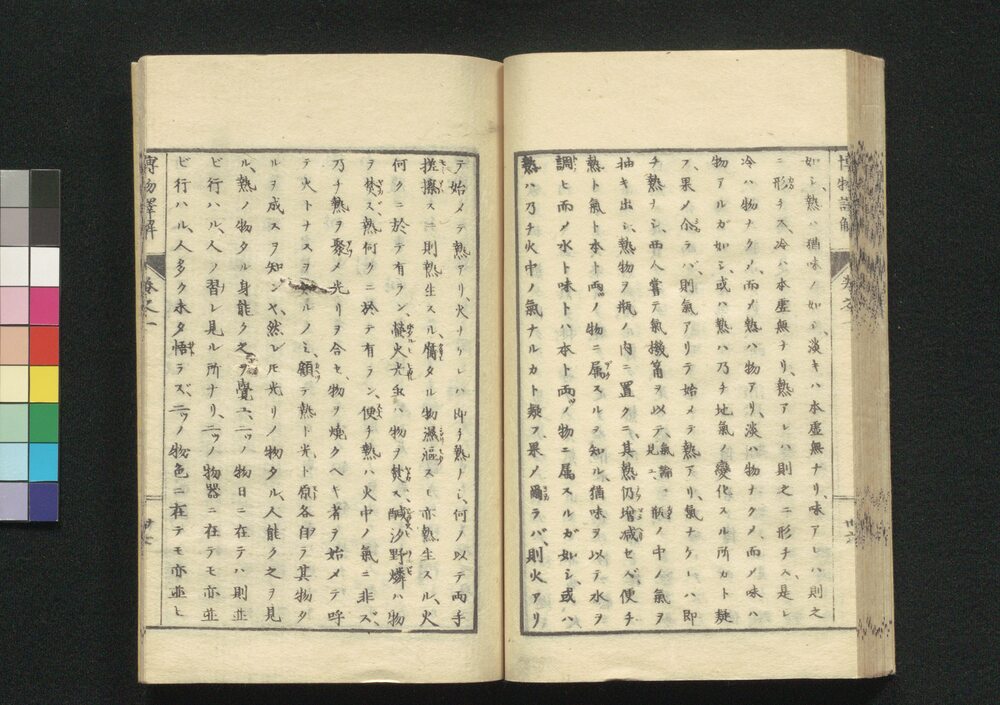 博物譯解 巻之一 廿六
如シ、熱ハ猶味ノ如シ、淡キハ本虚無ナリ、味アレハ則之
ニ形チス、冷ハ本虚無ナリ、熱アレハ則之ニ形チス、是レ
冷ハ物ナクメ、而メ熱ハ物アリ、淡ハ物ナクメ、而メ味ハ
物アルガ如シ、或ハ熱ハ乃チ地氣ノ變化スル所カト疑
フ、果メ尒ラバ、則氣アリテ始メテ熱アリ、氣ナケレハ即
チ熱ナシ、西人嘗テ氣機筩ヲ以テ、氣論ニ見ユ、瓶ノ中ノ氣ヲ
抽キ出シ、熱物ヲ瓶ノ内ニ置クニ、其熱仍増减セズ、便チ
熱ト氣ト本ト両ノ物ニ属スルヲ知ル、猶味ヲ以テ水ヲ
調ヒ而メ水ト味トハ本ト両ノ物ニ属スルガ如シ、或ハ
熱ハ乃チ火中ノ氣ナルカト疑フ、果メ爾ラバ、則火アリ
テ始メテ熱アリ、火ナケレハ即チ熱ナシ、何ノ以テ両手
搓擦スレハ則熱生スル、腐タル物濕漚スレハ亦熱生スル、火
何クニ於テ有ラン、燐火光虫ハ物ヲ焚ズ、鹹汐野燐ハ物
ヲ焚ズ、熱何クニ於テ有ラン、便チ熱ハ火中ノ氣ニ非ズ、
乃チ熱ヲ聚メ光リヲ合セ、物ヲ燒クヘキ者ヲ始メテ呼
テ火トナスヲ ルノミ、顧テ熱ト光ト原各自ラ其物タ
ルヲ成スヲ知ンヤ、然レモ光リノ物タル、人能ク之ヲ見
ル、熱ノ物タル身能ク之ヲ覺ユ、二ツノ物日ニ在テハ則並
ビ行ハル、人ノ習レ見ル所ナリ、二ツノ物器ニ在テモ亦並
ビ行ハル、人多ク未タ悟ラズ、二ツノ物色ニ在テモ亦並ヒ
博物譯解 巻之一 廿七